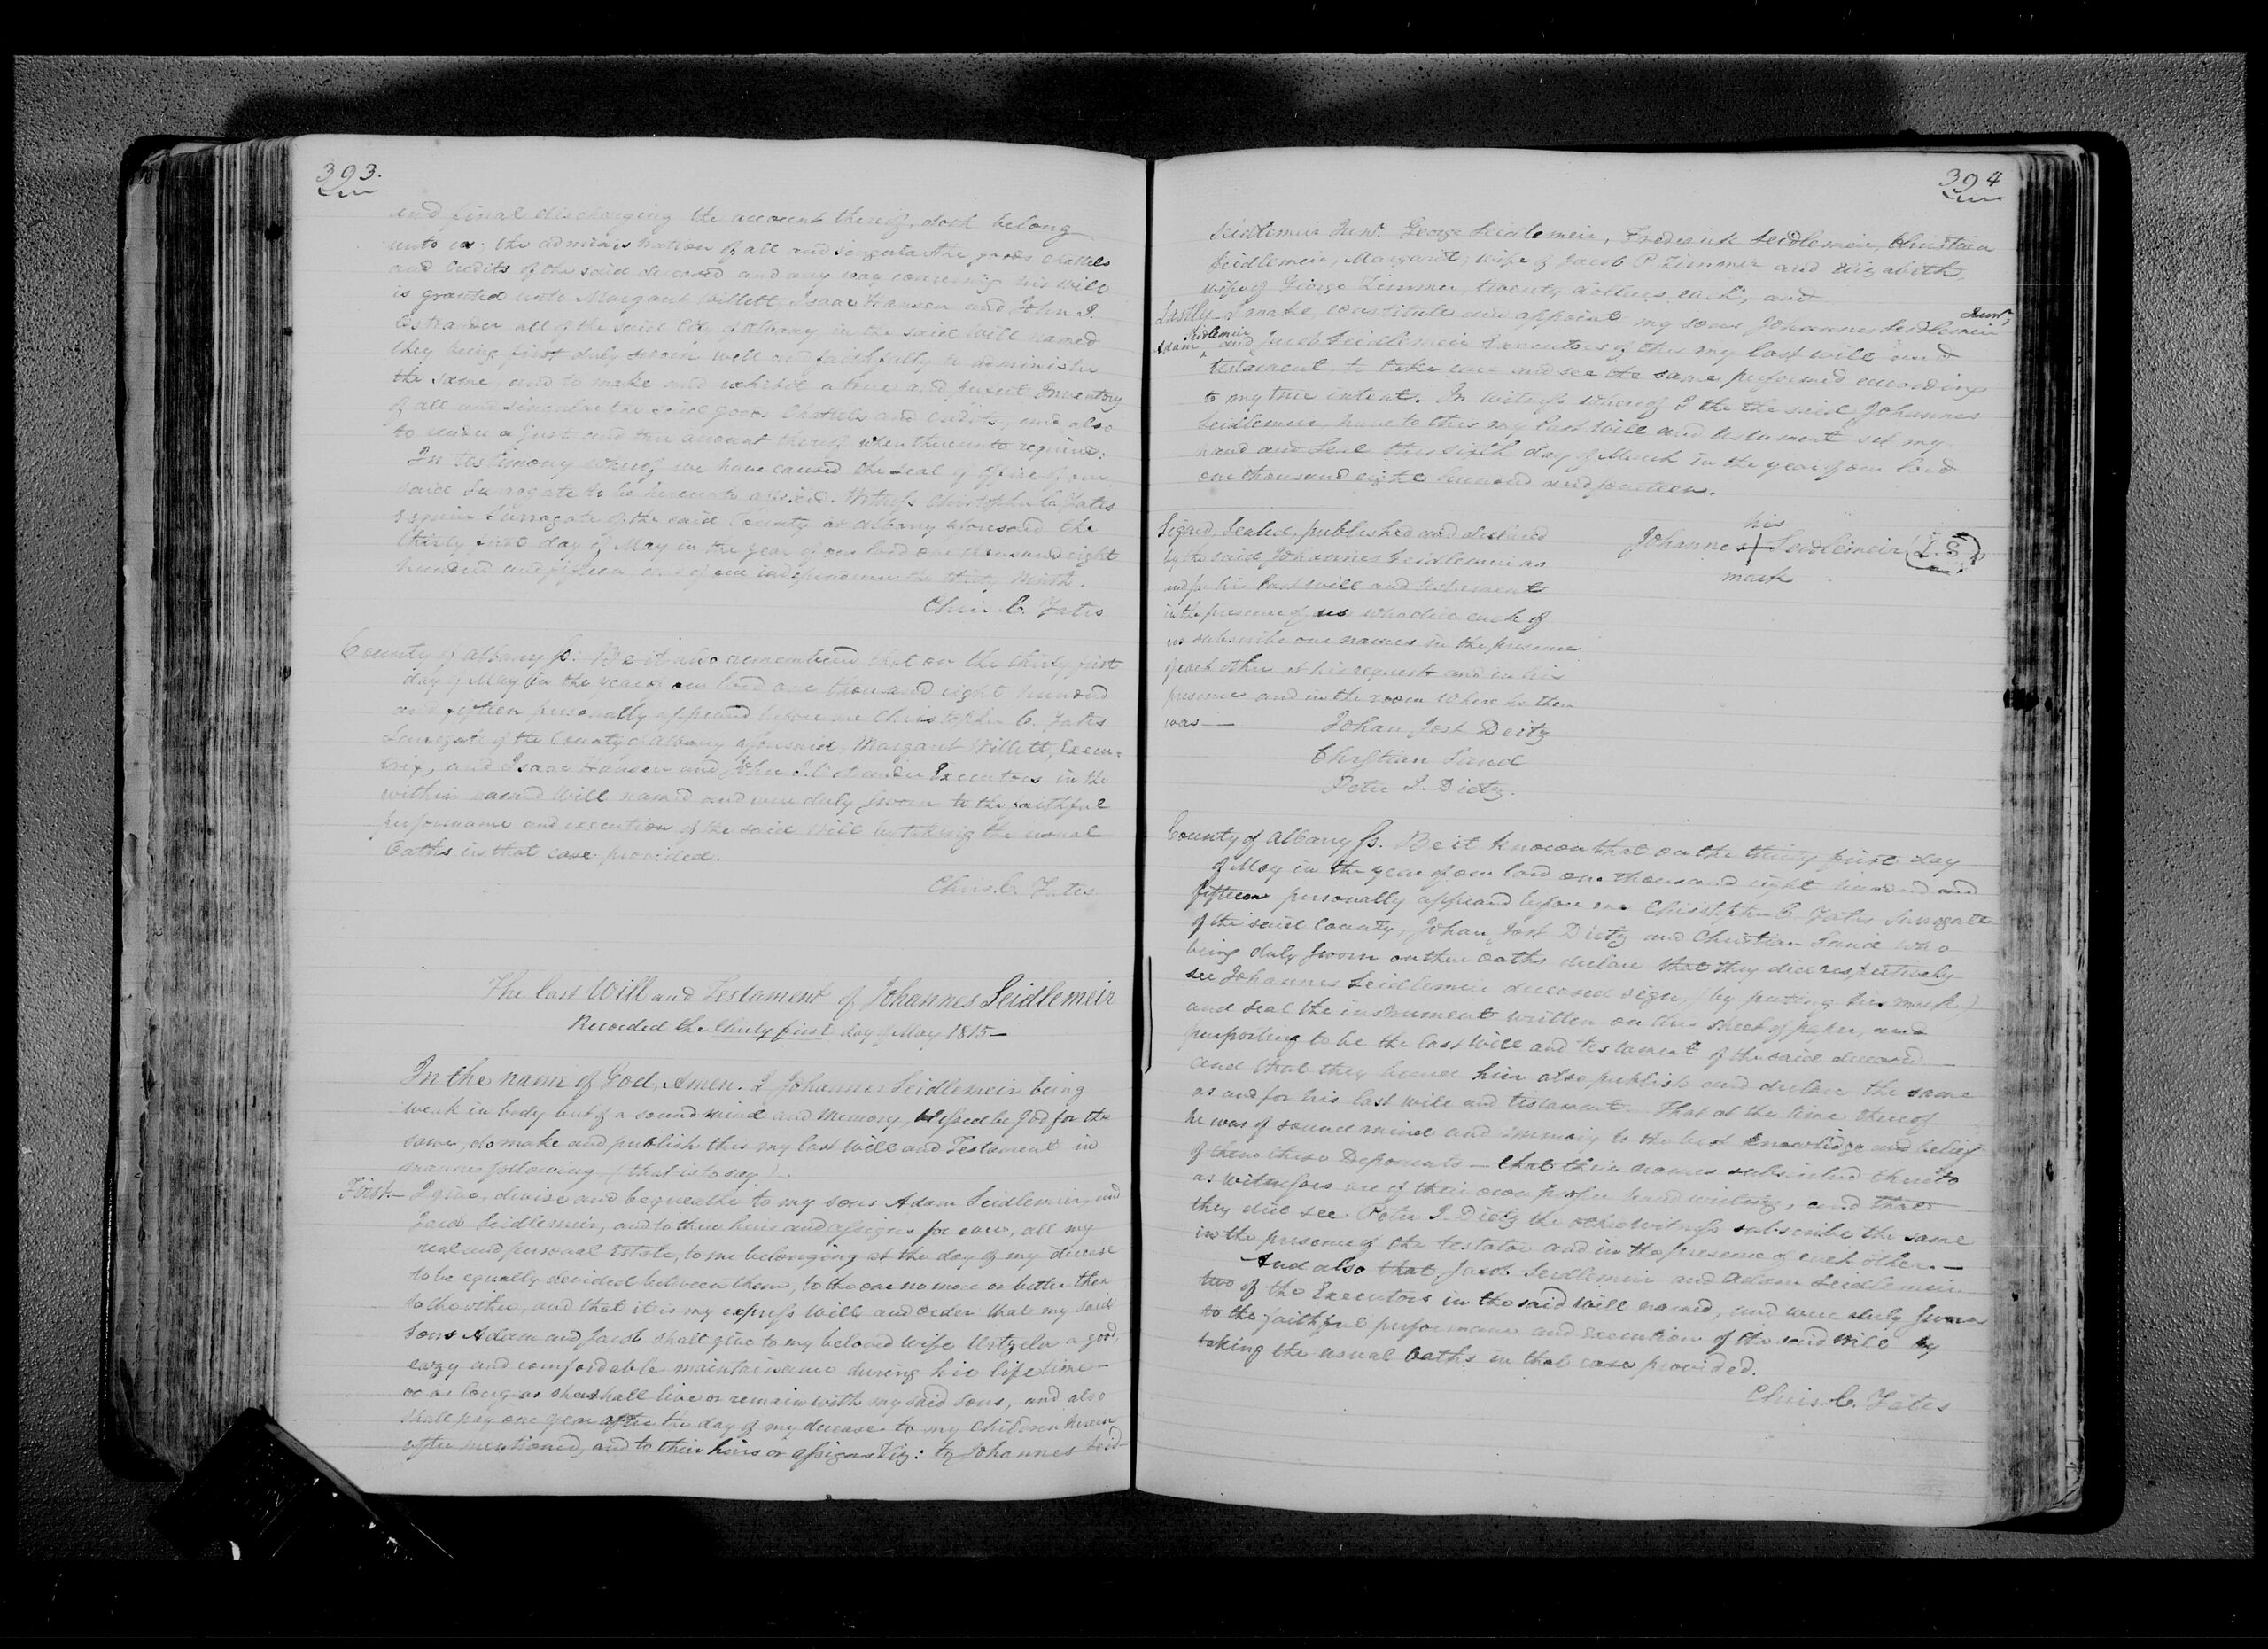 393.
and final discharging the account thereof, doth belong
unto us; the administration of all and singular the goods chattels
and credits of the said deceased and any way concerning his will
is granted unto Margaret Willett, Isaac Hansen and John J.
Ostrander all of the said City of Albany in the said Will named
they being first duly sworn well and faithfully to administer
the same, and to make and exhibit a true and perfect Inventory
of all and singular the said goods Chattels and credits, and also
to render a just and true account thereof when thereunto required.
In testimony whereof we have caused the seal of office of our
said Surrogate to be hereunto affixed. Witness Christopher C. Yates
Esquire Surrogate of the said County at Albany aforesaid the
thirty first day of May in the year of our lord one thousand eight
hundred and fifteen and of our independence the thirty ninth.
Chris. C. Yates
County of Albany ss. Be it also remembered that on the thirty first
day of May in the year of our lord one thousand eight hundred
and fifteen personally appeared before me Christopher C. Yates
Surrogate of the County of Albany aforesaid, Margaret Willett, Execu-
trix, and Isaac Hansen and John J. Ostrander Executors in the
within named Will named and were duly sworn to the faithful
performance and execution of the said Will by taking the usual
Oaths in that case provided.
Chris. C. Yates
The last Will and Testament of Johannes Seidlemeir
Recorded the thirty first day of May 1815—
In the name of God, Amen. I Johannes Seidlemeir being
weak in body but of a sound mind and memory, blessed be God for the
same, do make and publish this my last Will and Testament in
manner following (that is to say)
First— I give, devise and bequeathe to my sons Adam Seidlemeir, and
Jacob Seidlemeir, and to their heirs and assigns for ever, all my
real and personal Estate, to me belonging at the day of my decease
to be equally devided between them, to the one no more or better then
to the other, and that it is my express Will and order that my said
Sons Adam and Jacob shall give to my beloved wife Urtzela a good,
eazy and comfordable maintainance during her life time
or as long as she shall live or remain with my said sons, and also
shall pay one year after the day of my decease to my Children herein
after mentioned, and to their heirs or assigns Viz: to Johannes Seid-
394
Seidlemeir Junr. George Seidlemeir, Frederick Seidlemeir, Christina
Seidlemeir, Margaret, wife of Jacob P. Zimmer and Elizabeth,
wife of George Zimmer, twenty dollars each, and
Lastly— I make, constitute and appoint my sons Johannes Seidlemeir Junr,
Adam Seidlemeir and Jacob Seidlemeir Executors of this my last will and
testament, to take care and see the same performed according
to my true intent. In witness whereof I the the said Johannes
Seidlemeir, have to this my last Will and testament set my
hand and Seal this sixth day of March in the year of our lord
one thousand eight hundred and fourteen.
Signed, Sealed, published and declared
by the said Johannes Seidlemeir as
and for his last will and testament
in the presence of us who did each of
us subscribe our names in the presence
of each other at his request and in his
presence and in the room where he then
was—
his
Johannes + Seidlemeir (L.S.)
mark
Johan Jost Deitz
Christian Sand
Peter J. Dietz.
County of Albany ss. Be it known that on the thirty first day
of May in the year of our lord one thousand eight hundred and
fifteen personally appeared before me Christopher C. Yates Surrogate
of the said County, Johan Jost Dietz and Christian Sand who
being duly sworn on their oaths declare that they did respectively
see Johannes Seidlemeir deceased sign (by putting his mark)
and seal the instrument written on this sheet of paper, and
purporting to be the last Will and testament of the said deceased
and that they heard him also publish and declare the same
as and for his last will and testament. That at the time thereof
he was of sound mind and memory to the best knowledge and belief
of them these Deponents— that their names subscribed thereto
as witnesses are of their own proper hand writing, and that
they did see Peter J. Dietz the other witness subscribe the same
in the presence of the testator and in the presence of each other.—
And also that Jacob Seidlemeir and Adam Seidlemeir
two of the Executors in the said Will named, and were duly sworn
to the faithful performance and execution of the said Will by
taking the usual Oaths in that case provided.
Chris. C. Yates